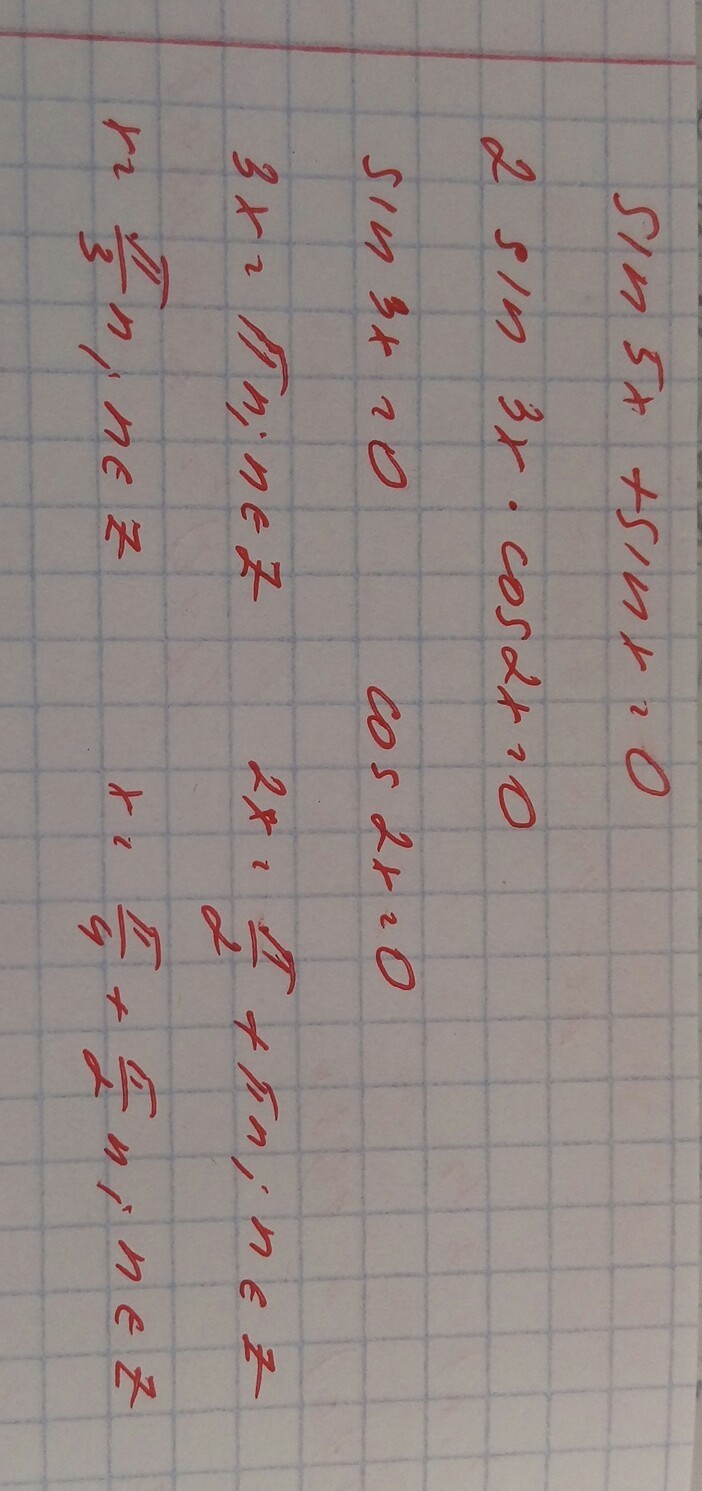 sin 5x + sin x = 0
2 sin 3x · cos 2x = 0
sin 3x = 0 cos 2x = 0
3x = πn; n ∈ Z 2x = π/2 + πn; n ∈ Z
x = π/3 n; n ∈ Z x = π/4 + π/2 n; n ∈ Z